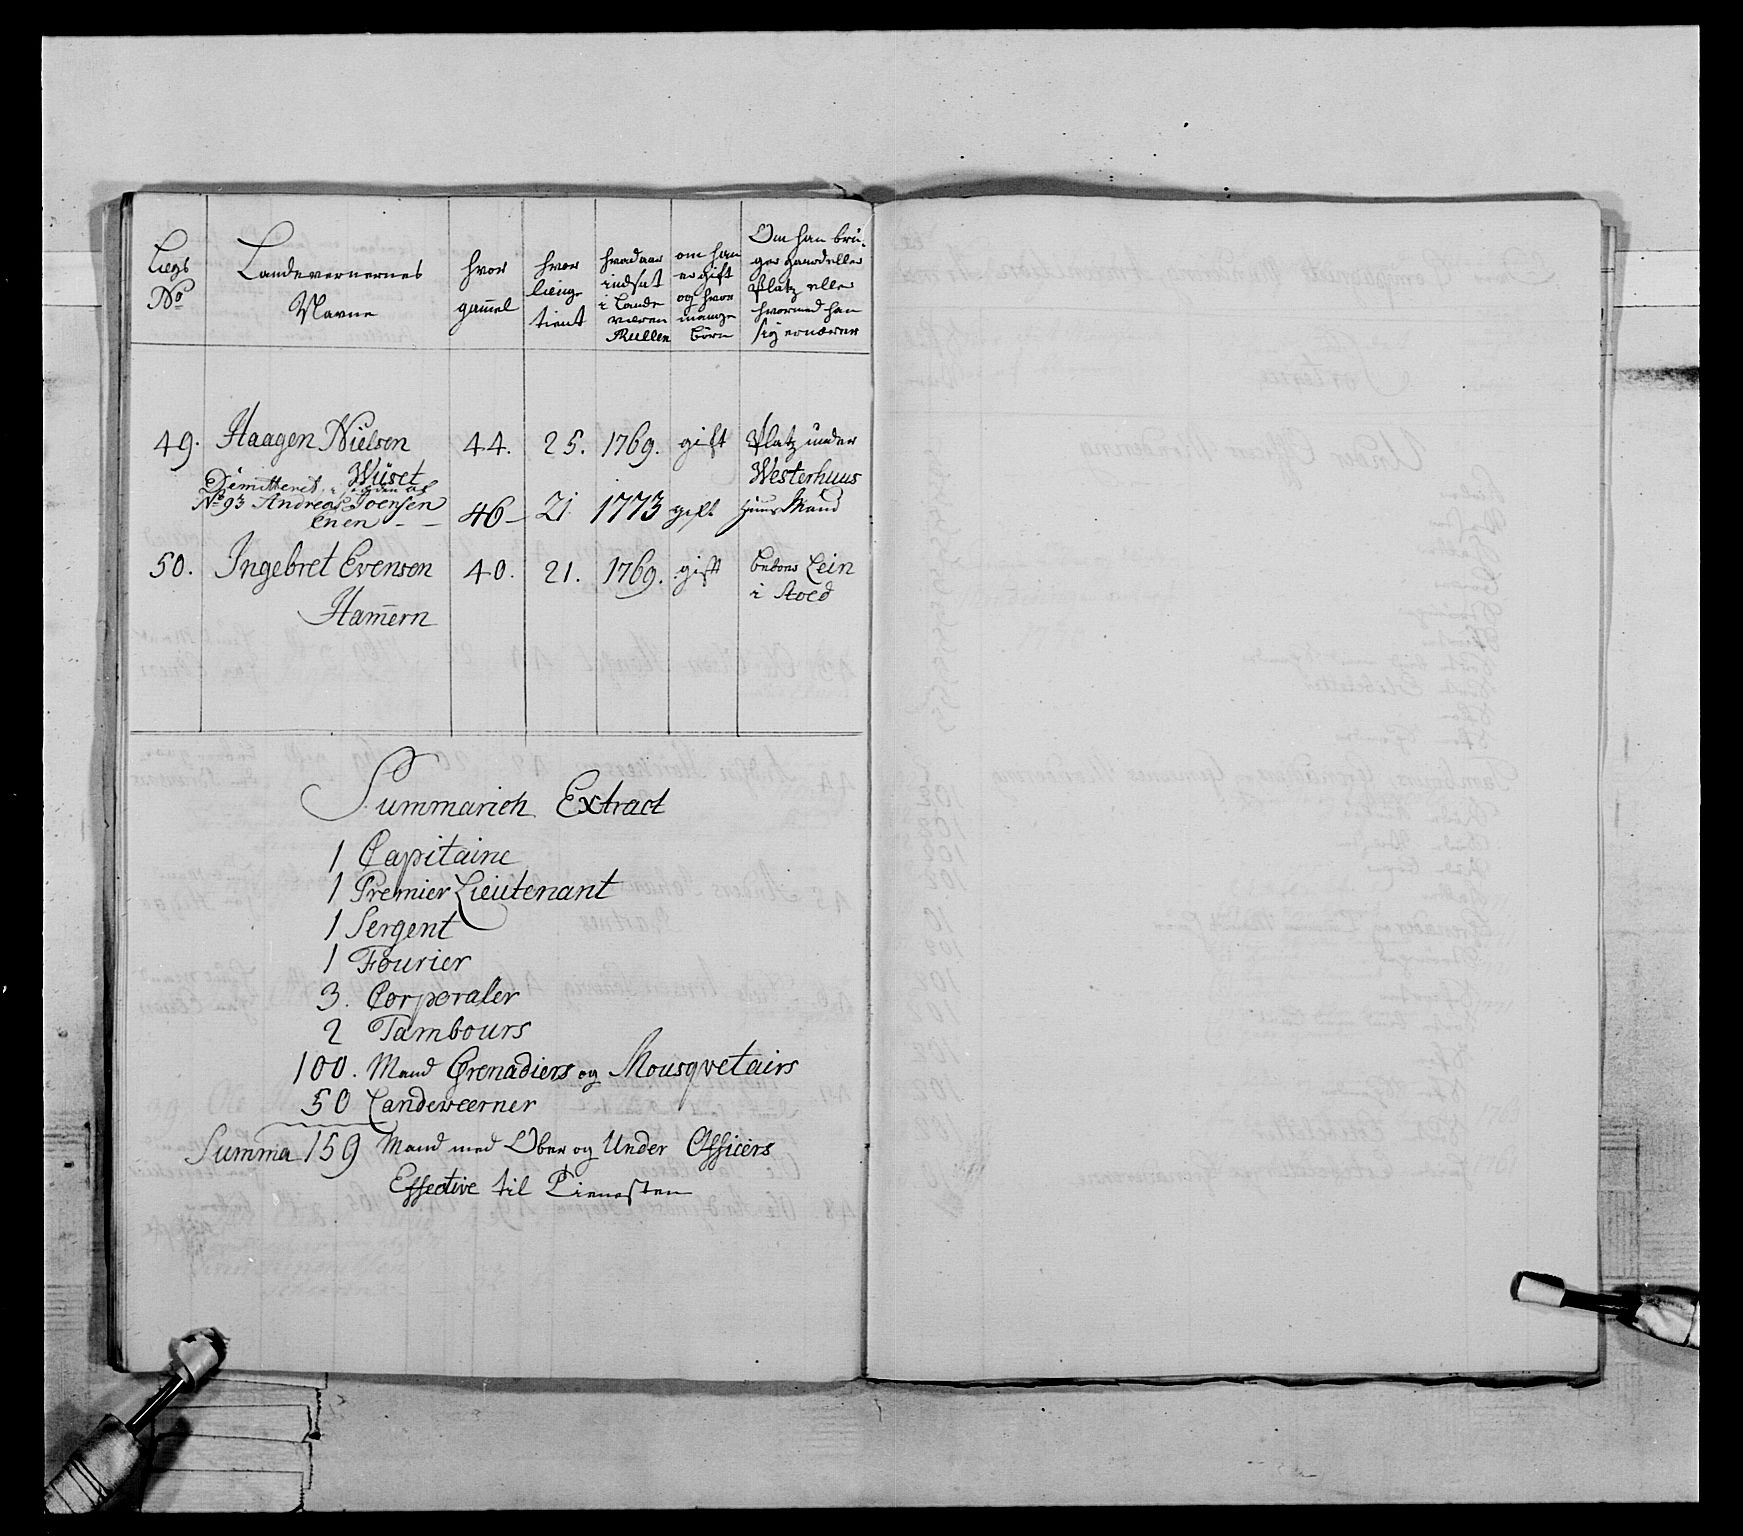 Liegs No
Landevernernes Navne
hvor gam̄el
hvor længe tient
hvad aar indsat i Lande væren Rullen
om han er gift og hvor mange børn
Om han bru-
ger gaard eller
Platz eller
hvormed han
sig ernærer
49. Haagen Nielsen 44. 25. 1769. gift Platz under
Wüset Westerhuus
Dimitteret,
No 93 Andreas Joensen
Enen 46 21. 1773 gift Huus Mand
50. Ingebret Evensen 40. 21. 1769. gift beboer Lein
Ham̄ern i Stoed
Summarich Extract
1 Capitaine
1 Premier Lieutenant
1 Sergent
1 Fourier
3. Corporaler
2 Tambours
100. Mand Grenadiers og Mousqvetairs
50 Landeværner
Summa 159 Mand med Ober og Under Officers
Effective til Tienesten